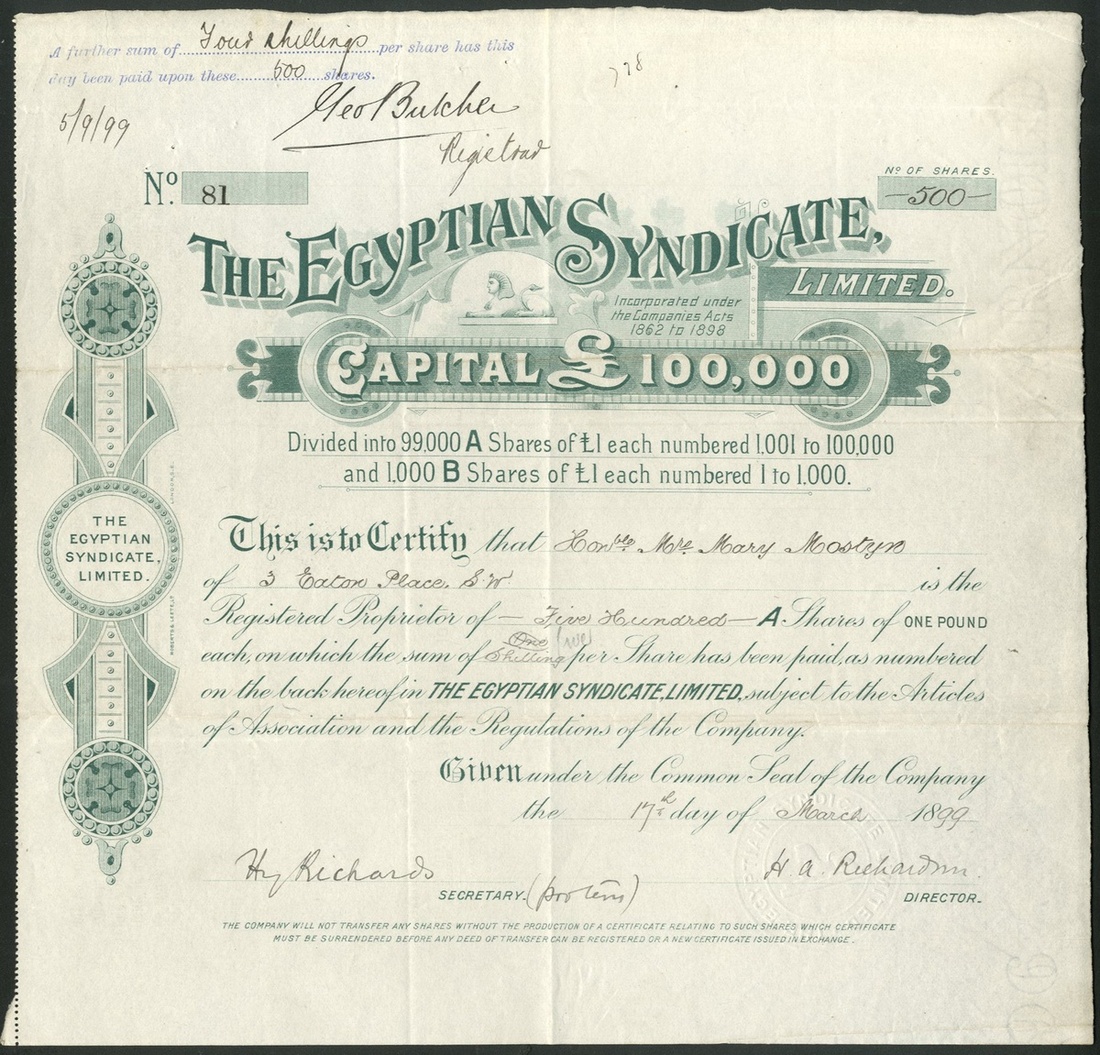 A further sum of Four shillings per share has this
day been paid upon these 500 shares.
5/9/99
Geo Butcher
Registrar
778
No. 81
No OF SHARES.
—500—
THE EGYPTIAN SYNDICATE,
LIMITED.
Incorporated under
the Companies Acts
1862 to 1898
CAPITAL £100,000
Divided into 99,000 A Shares of £1 each numbered 1,001 to 100,000
and 1,000 B Shares of £1 each numbered 1 to 1,000.
THE
EGYPTIAN
SYNDICATE,
LIMITED.
This is to Certify that Honble Mrs Mary Mostyn
of 3 Eaton Place, S.W. is the
Registered Proprietor of — Five Hundred — A Shares of ONE POUND
each, on which the sum of One Shilling per Share has been paid, as numbered
on the back hereof in THE EGYPTIAN SYNDICATE, LIMITED, subject to the Articles
of Association and the Regulations of the Company.
Given under the Common Seal of the Company
the 17th day of March 1899
Hy Richards
H. A. Richardson.
SECRETARY. (pro tem)
DIRECTOR.
THE COMPANY WILL NOT TRANSFER ANY SHARES WITHOUT THE PRODUCTION OF A CERTIFICATE RELATING TO SUCH SHARES WHICH CERTIFICATE
MUST BE SURRENDERED BEFORE ANY DEED OF TRANSFER CAN BE REGISTERED OR A NEW CERTIFICATE ISSUED IN EXCHANGE.